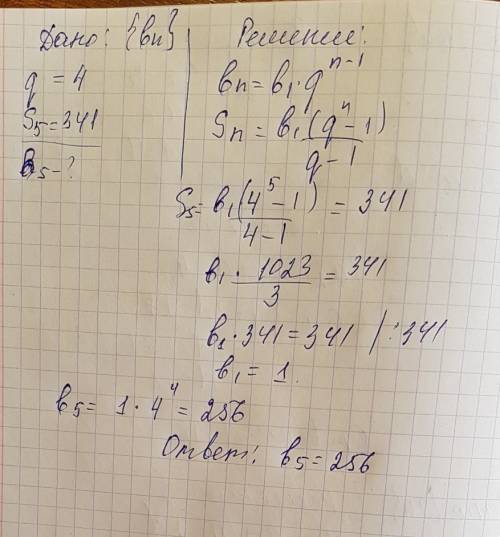 Дано: {bn}
q = 4
S5 = 341
b5 - ?
Решение:
bn = b1 · q^n-1
Sn = b1 (q^n - 1) / q - 1
S5 = b1 (4^5 - 1) / 4 - 1 = 341
b1 · 1023 / 3 = 341
b1 · 341 = 341 / : 341
b1 = 1.
b5 = 1 · 4^4 = 256
Ответ: b5 = 256